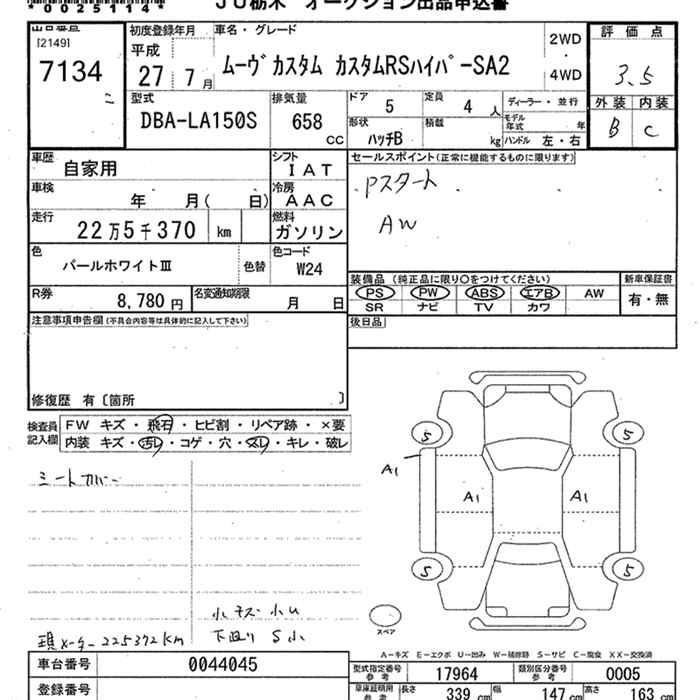 *0025114*
JU栃木 オークション出品申込書
出品番号
[2149]
7134
初度登録年月
平成
27 7月
車名・グレード
ムーヴカスタム カスタムRSハイパーSA2
2WD
・
4WD
評価点
3.5
外装 内装
B C
型式
DBA-LA150S
排気量
658
cc
ドア
5
定員
4人
ディーラー・並行
形状
ハッチB
積載
kg
モデル年式 年
ハンドル 左・右
車歴
自家用
シフト
IAT
セールスポイント(正常に機能するものに限ります)
Pスタート
AW
車検
年 月( 日)
冷房
AAC
走行
22万5千370 km
燃料
ガソリン
色
パールホワイトⅢ
色替
色コード
W24
装備品 (純正品に限り○をつけてください)
PS PW ABS エアB AW
SR ナビ TV カワ
新車保証書
有・無
R券
8,780円
名変通知期限
月 日
後日品
注意事項申告欄(不具合内容等は具体的に記入して下さい)
修復歴 有〔箇所 〕
検査員記入欄
FW キズ・飛石・ヒビ割・リペア跡・×要
内装 キズ・汚レ・コゲ・穴・スレ・キレ・破レ
シートカバー
小キズ小U
下廻りS小
現メーター225372km
5 5
A1
A1 A1
5 5
スペア
A-キズ E-エクボ U-凹み W-補修跡 S-サビ C-腐食 XX-交換済
車台番号
0044045
登録番号
型式指定番号 参考
17964
類別区分番号 参考
0005
車庫証明用 参考
長さ 339 cm
幅 147 cm
高さ 163 cm